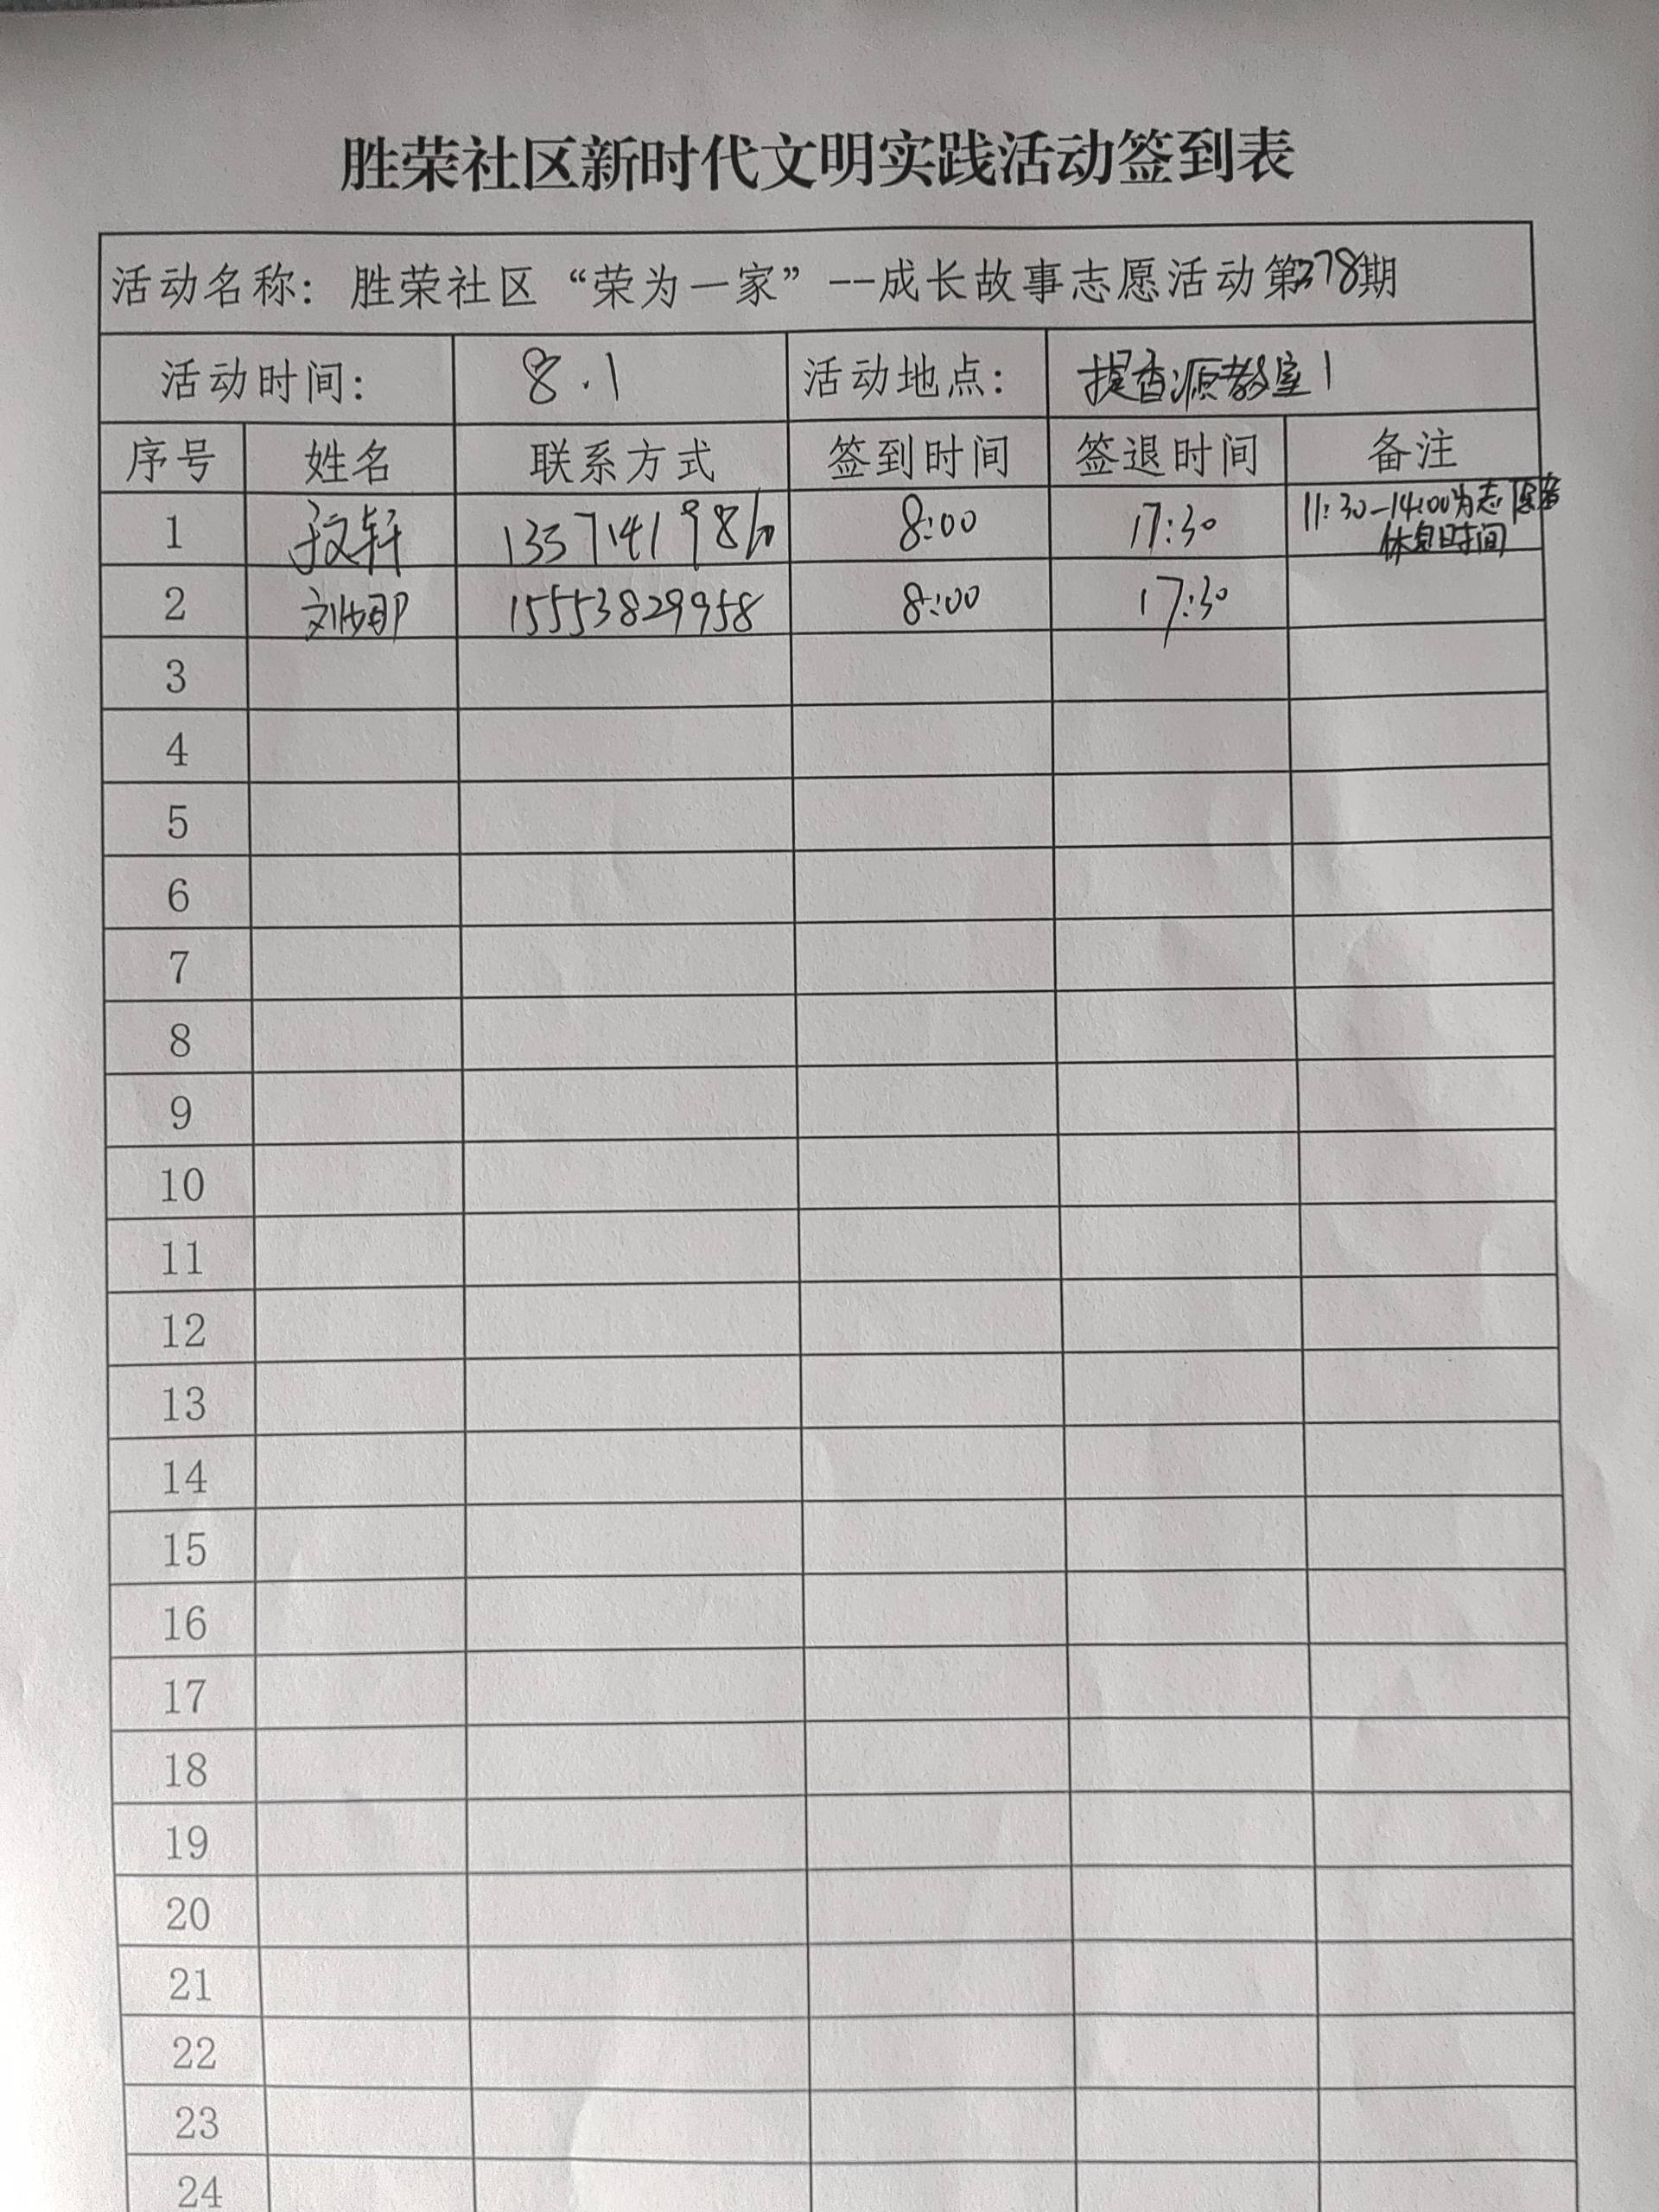 胜荣社区新时代文明实践活动签到表
活动名称：胜荣社区“荣为一家”--成长故事志愿活动第378期
活动时间： 8.1 活动地点： 提香源教室1
序号 姓名 联系方式 签到时间 签退时间 备注
1 于文轩 13371419860 8:00 17:30 11:30-14:00为志愿者
休息时间
2 刘娜 15553829958 8:00 17:30
3
4
5
6
7
8
9
10
11
12
13
14
15
16
17
18
19
20
21
22
23
24